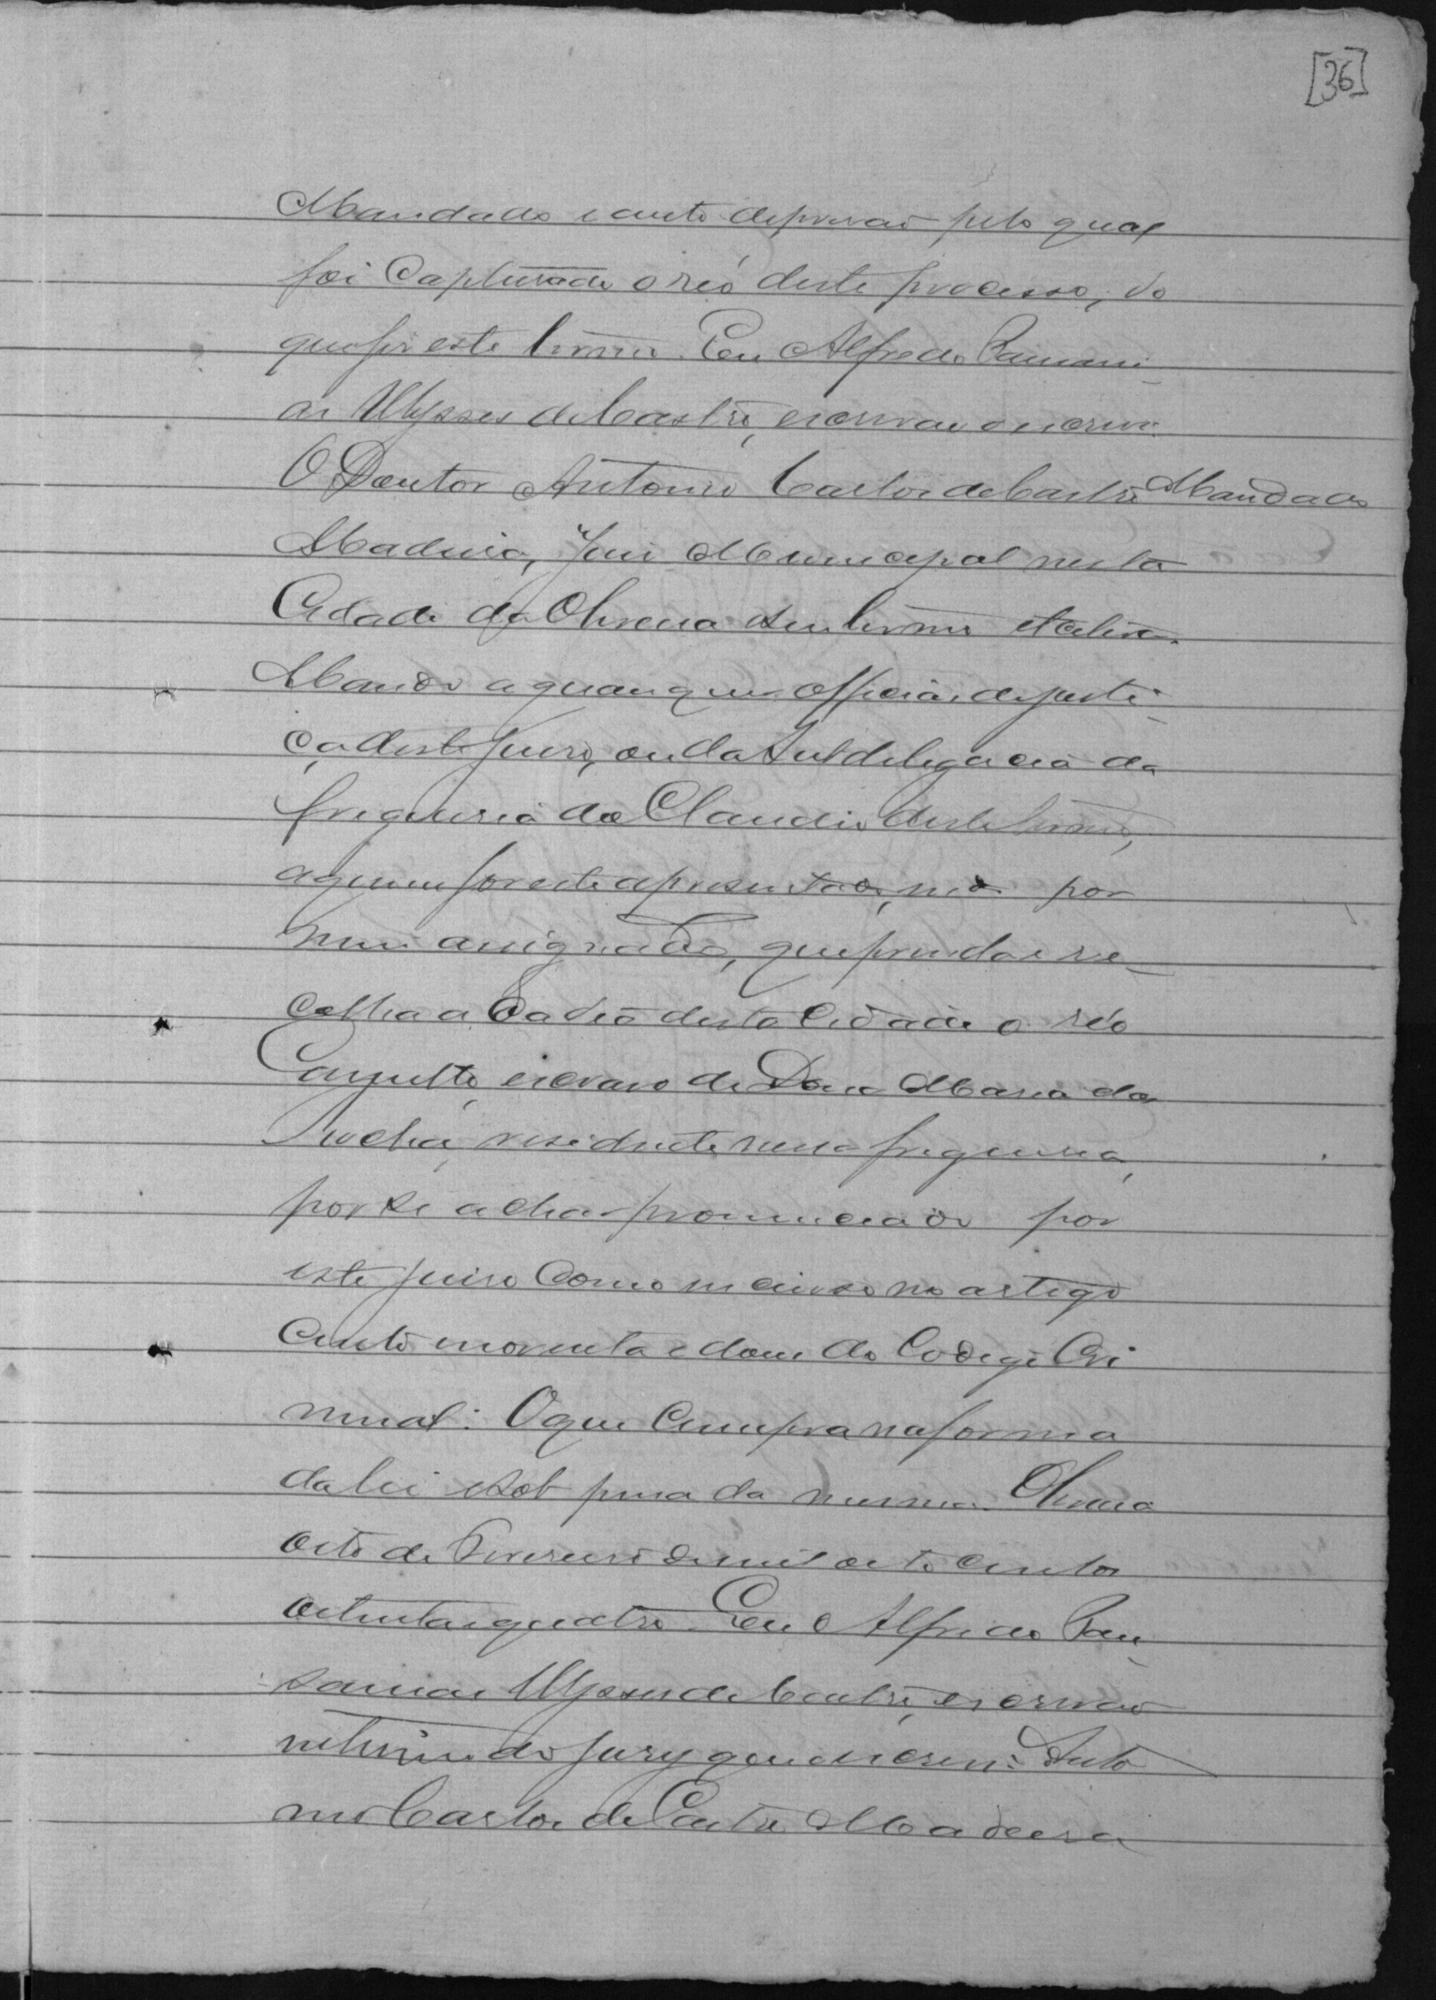 [36]
Mandado e auto de prisão pelo qual
foi Capturado o reo deste processo, do
que fis este termo. Eu Alfredo
Ulysses de Castro, escrivão o escrevi
O Doutor Antonio Carlos de Castro Mandado
Madeira, Juis Municipal nesta
Cidade da Oliveira seu termo etcetera
Mando a qualquer official de justi-
ça deste Juiso, ou da Subdelegacia da
freguesia do Claudio deste termo,
a quem for este apresentado, indo por
mim assignado, que prenda e re-
colha a Cadeia desta Cidade o réo
escravo de Dona Maria da
Rocha, residente nessa freguesia,
por se achar pronunciado por
este juiso Como incurso no artigo
cento noventa e dous do Codigo Cri
minal: O que Cumpra na forma
da lei e sob pena da mesma. Oliveira
oito de Fevereiro de mil oito centos
oitenta e quatro. Eu Alfredo
Ulysses de Castro, escrivão
interino do Jury que o escrevi: Anto
nio Carlos de Castro Madeira